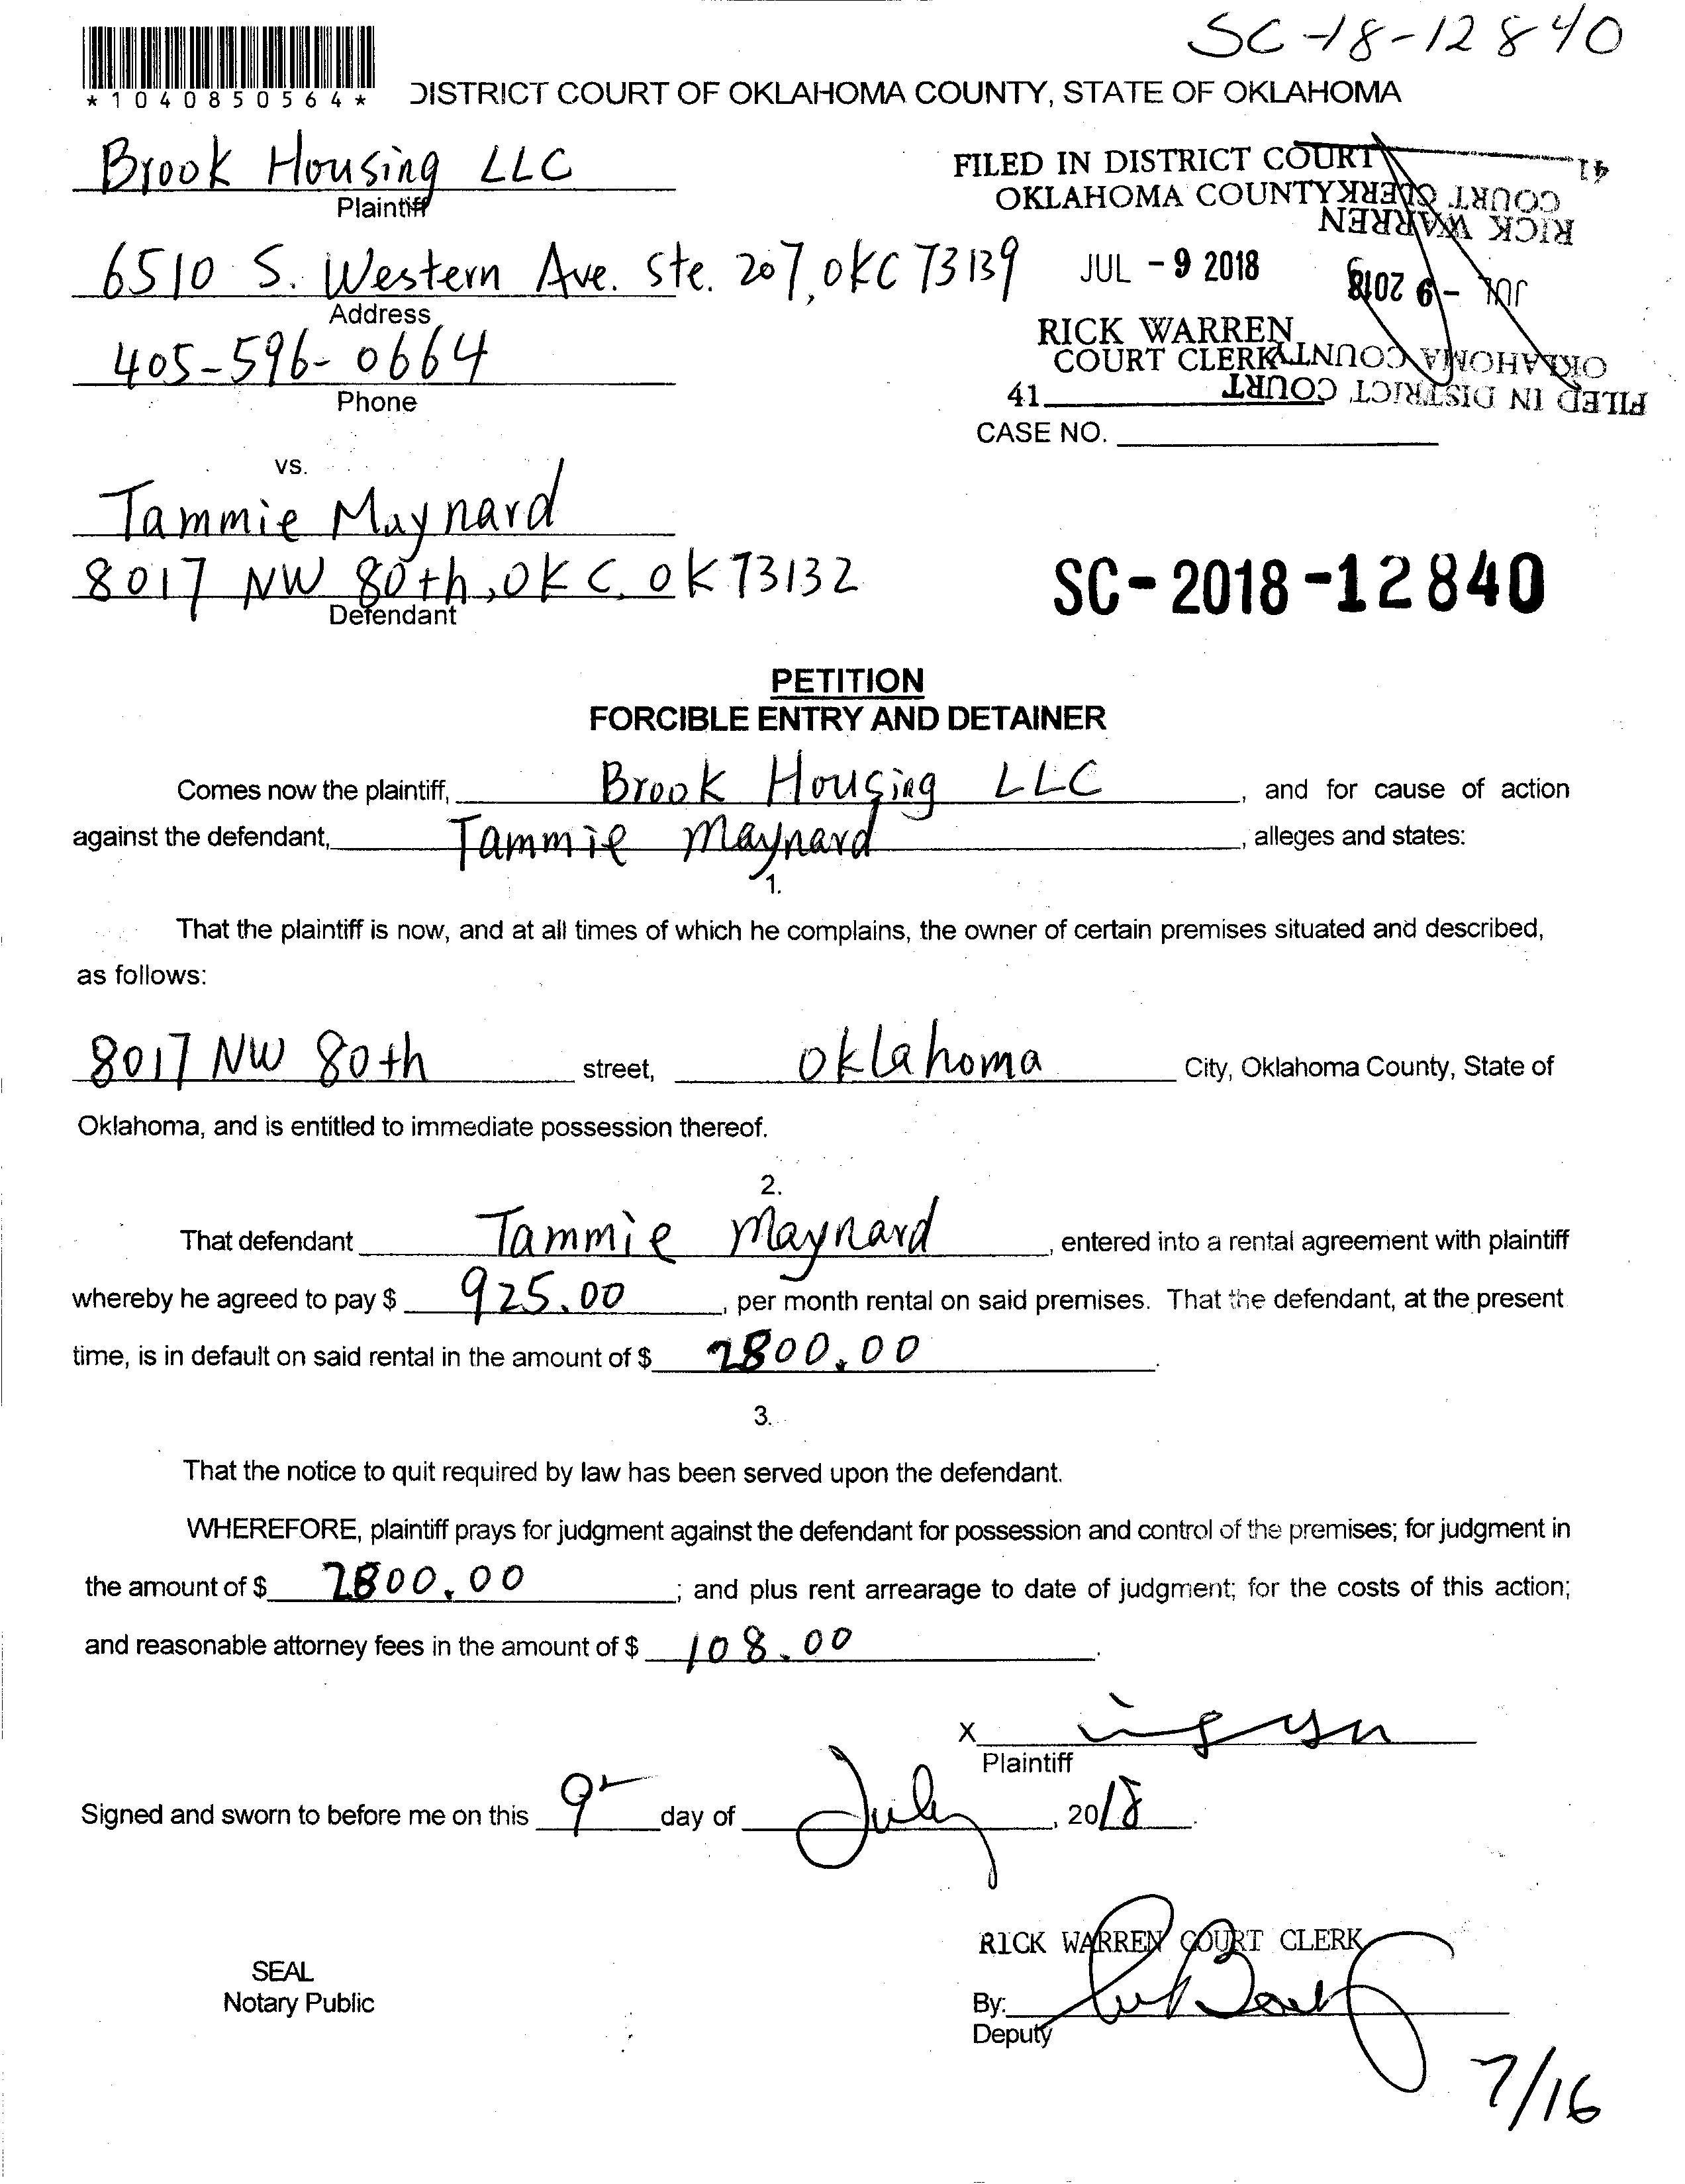 SC-18-12840
*1040850564*
DISTRICT COURT OF OKLAHOMA COUNTY, STATE OF OKLAHOMA
Brook Housing LLC
Plaintiff
6510 S. Western Ave. Ste. 207, OKC 73139
Address
405-596-0664
Phone
FILED IN DISTRICT COURT
OKLAHOMA COUNTY
JUL - 9 2018
RICK WARREN
COURT CLERK
41
FILED IN DISTRICT COURT
OKLAHOMA COUNTY
JUL - 9 2018
RICK WARREN
COURT CLERK
41
CASE NO.
vs.
Tammie Maynard
8017 NW 80th, OKC, OK 73132
Defendant
SC-2018-12840
PETITION
FORCIBLE ENTRY AND DETAINER
Comes now the plaintiff, Brook Housing LLC, and for cause of action
against the defendant, Tammie Maynard, alleges and states:
1.
That the plaintiff is now, and at all times of which he complains, the owner of certain premises situated and described,
as follows:
8017 NW 80th street, Oklahoma City, Oklahoma County, State of
Oklahoma, and is entitled to immediate possession thereof.
2.
That defendant Tammie Maynard, entered into a rental agreement with plaintiff
whereby he agreed to pay $ 925.00, per month rental on said premises. That the defendant, at the present
time, is in default on said rental in the amount of $ 2800.00.
3.
That the notice to quit required by law has been served upon the defendant.
WHEREFORE, plaintiff prays for judgment against the defendant for possession and control of the premises; for judgment in
the amount of $ 2800.00; and plus rent arrearage to date of judgment; for the costs of this action;
and reasonable attorney fees in the amount of $ 108.00.
X
Plaintiff
Signed and sworn to before me on this 9 day of July, 2018.
RICK WARREN COURT CLERK
SEAL
Notary Public
By:
Deputy
7/16